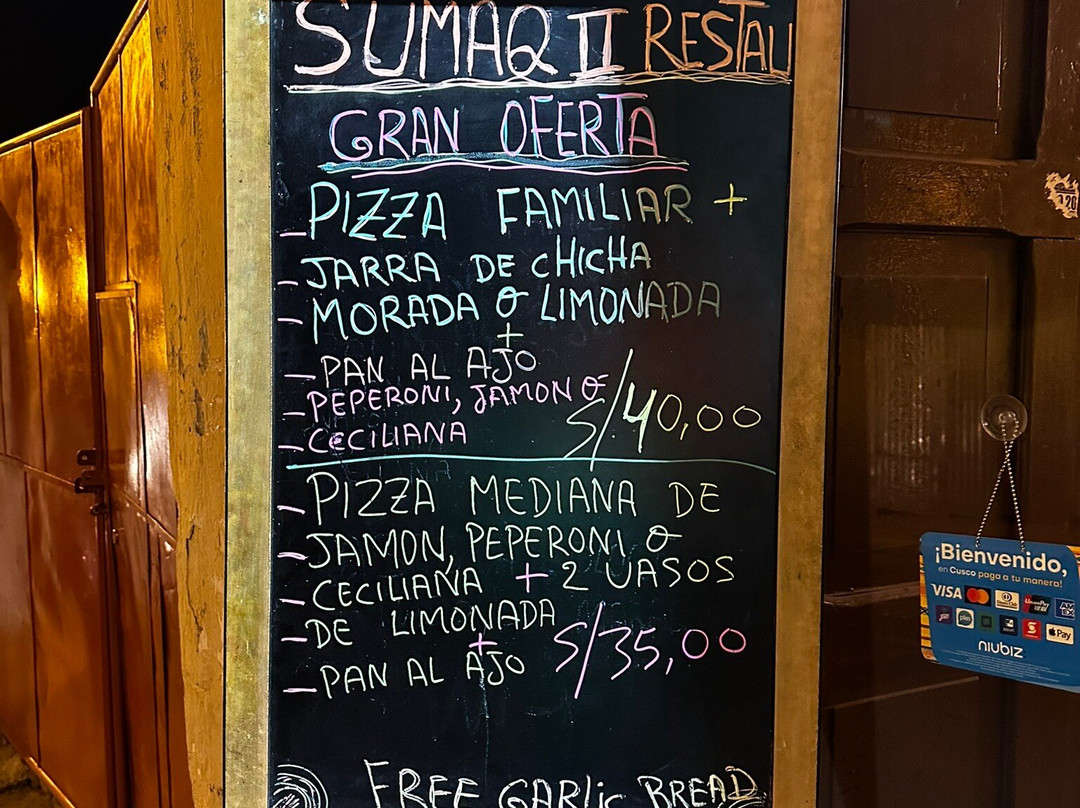 SUMAQ II RESTAU
GRAN OFERTA
- PIZZA FAMILIAR +
- JARRA DE CHICHA
- MORADA O LIMONADA
+
- PAN AL AJO
- PEPERONI, JAMON O
- CECILIANA S/40,00
- PIZZA MEDIANA DE
- JAMON, PEPERONI O
- CECILIANA + 2 VASOS
- DE LIMONADA
+
- PAN AL AJO S/35,00
FREE GARLIC BREAD
¡Bienvenido,
en Cusco paga a tu manera!
VISA
Diners Club
UnionPay
AM
EX
plin
Pay
niubiz